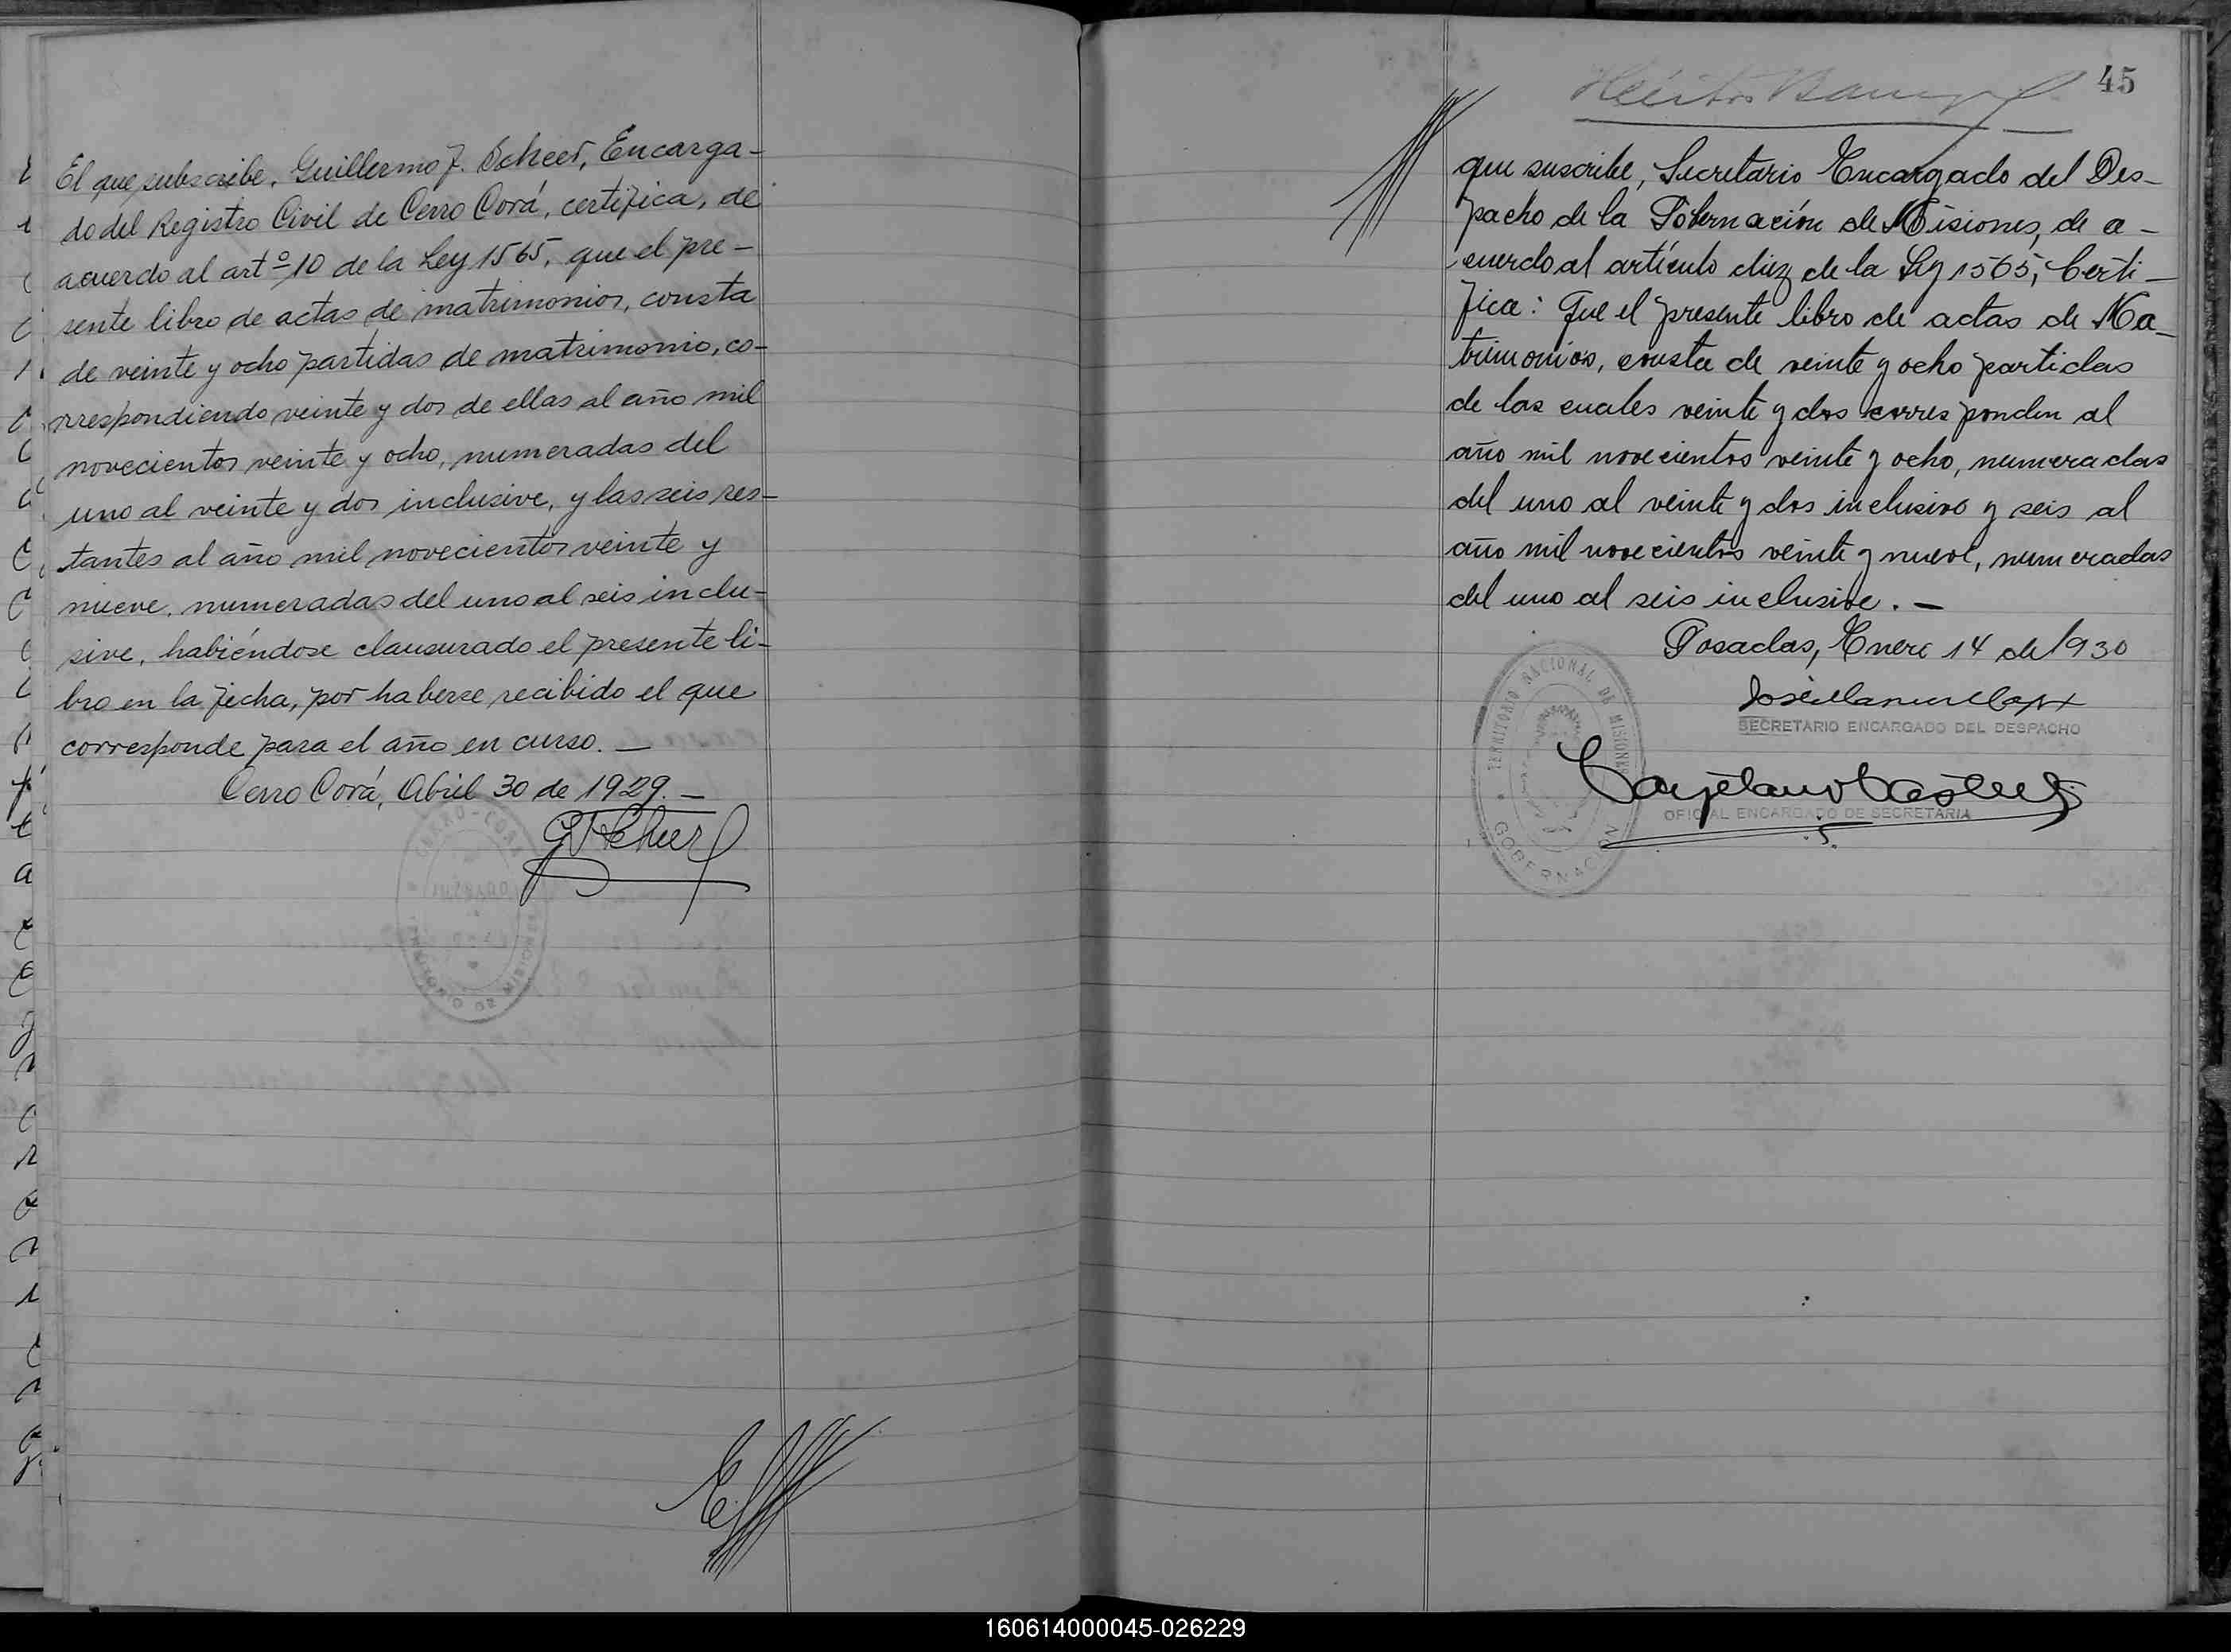 El que subscribe, Guillermo F. Scheer, Encarga-
do del Registro Civil de Cerro Corá, certifica, de
acuerdo al artº 10 de la Ley 1565, que el pre-
sente libro de actas de matrimonios, consta
de veinte y ocho partidas de matrimonio, co-
rrespondiendo veinte y dos de ellas al año mil
novecientos veinte y ocho, numeradas del
uno al veinte y dos inclusive, y las seis res-
tantes al año mil novecientos veinte y
nueve, numeradas del uno al seis inclu-
sive, habiéndose clausurado el presente li-
bro en la fecha, por haberse recibido el que
corresponde para el año en curso. —
Cerro Corá, Abril 30 de 1929. —
GF Scheer
CERRO-CORÁ
E
45
Héctor
que suscribe, Secretario Encargado del Des-
pacho de la Gobernación de Misiones, de a-
cuerdo al artículo diez de la Ley 1565, Certi-
fica: Que el presente libro de actas de Ma-
trimonios, consta de veinte y ocho partidas
de las cuales veinte y dos corresponden al
año mil novecientos veinte y ocho, numeradas
del uno al veinte y dos inclusive y seis al
año mil novecientos veinte y nueve, numeradas
del uno al seis inclusive. —
Posadas, Enero 14 de 1930
SECRETARIO ENCARGADO DEL DESPACHO
TERRITORIO NACIONAL DE MISIONES
GOBERNACION
Cayetano
OFICIAL ENCARGADO DE SECRETARIA
160614000045-026229